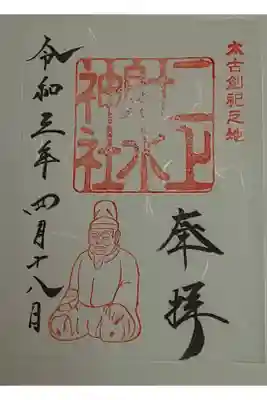 太古創祀之地
奉拝
二上
射水
神社
令和三年四月十八日